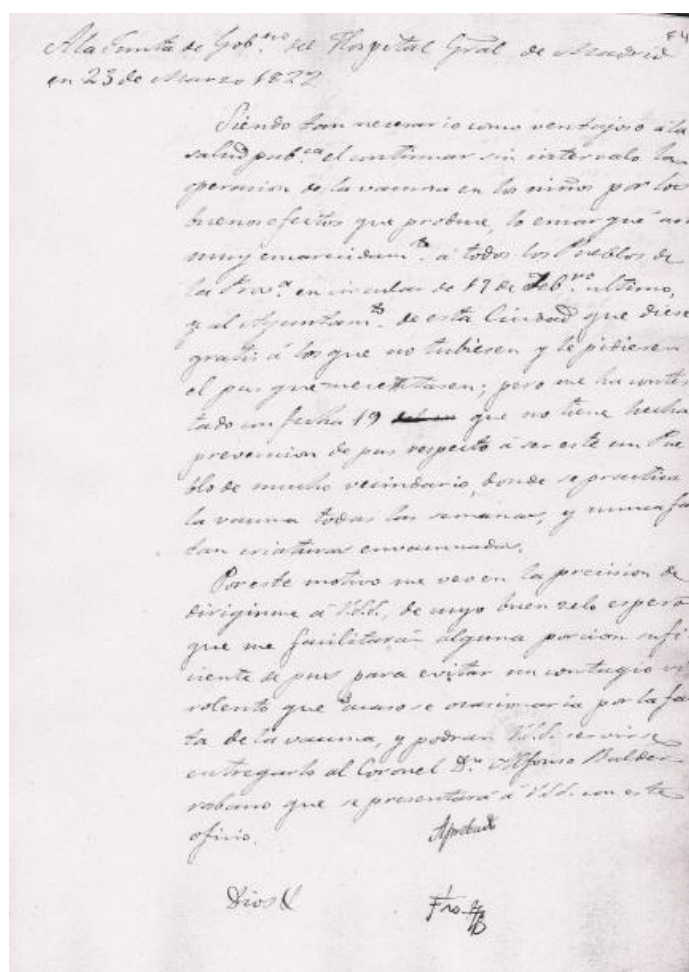 A la Junta de Gob.no del Hospital Gral de Madrid
en 23 de Marzo 1822
Siendo tan necesario como ventajoso á la
salud pub.ca el continuar sin intervalo la
operacion de la vacuna en los niños por los
buenos efectos que produce, lo encargué asi
muy encarecidam.te á todos los Pueblos de
la Prov.a en circular de 17 de Feb.ro ultimo,
y al Ayuntam.to de esta Ciudad que diese
gratis á los que no tubiesen y le pidiesen
el pus que necesitasen; pero me ha contes
tado con fecha 19 que no tiene hecha
prevencion de pus respecto á ser este un Pue
blo de mucho vecindario, donde se practica
la vacuna todas las semanas, y nunca fa
tan criaturas envacunadas.
Por este motivo me veo en la precision de
dirigirme á V.S.S., de cuyo buen zelo espero
que me facilitarán alguna porcion sufi
ciente de pus para evitar un contagio vi
rolento que acaso se ocasionaria por la fa
ta de la vacuna, y podran V.S.S. servirse
entregarlo al Coronel D.n Alfonso Balder
rabano que se presentará á V.S.S. con este
oficio.
Aprobado
Dios &